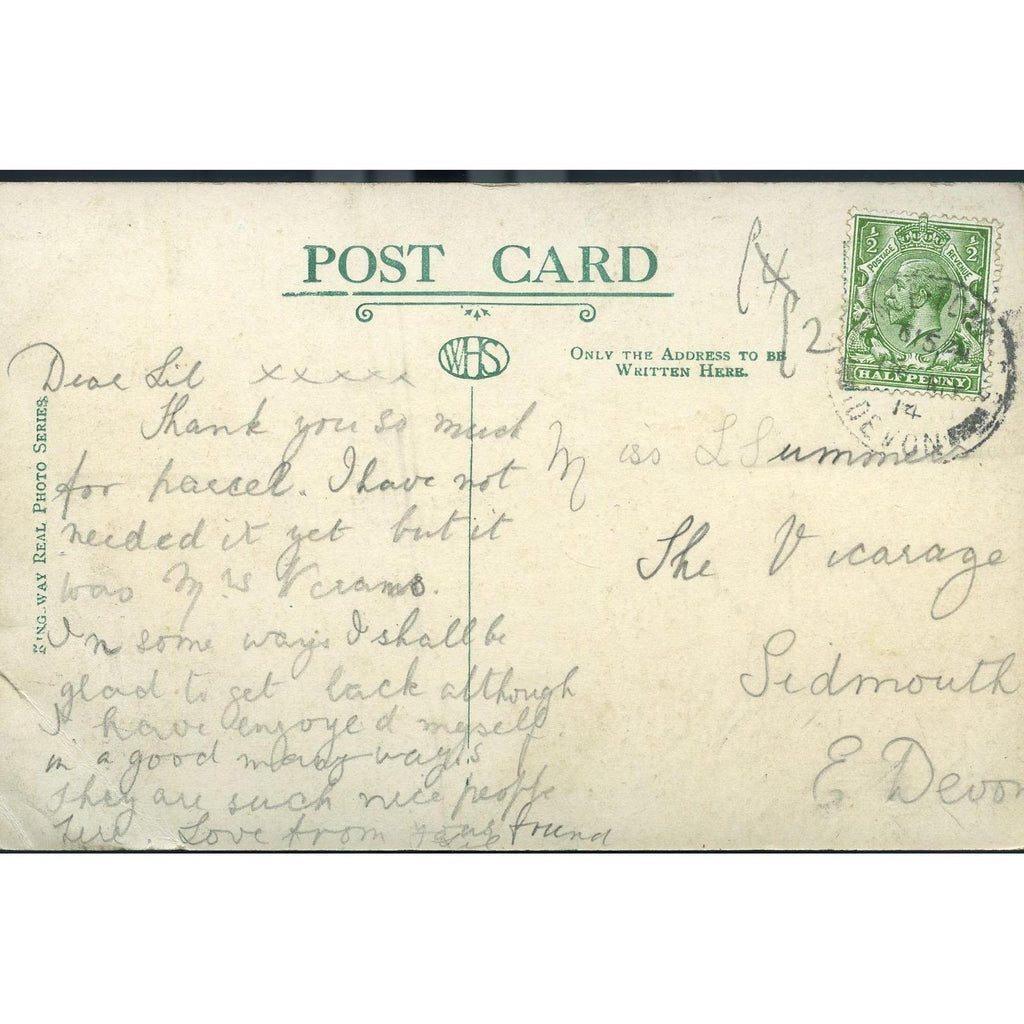 POST CARD
WHS
ONLY THE ADDRESS TO BE
WRITTEN HERE.
KING-WAY REAL PHOTO SERIES
1/2 1/2
POSTAGE REVENUE
HALFPENNY
14
DEVON
Dear Lil xxxxx
Thank you so much
for parcel. I have not
needed it yet but it
was Mrs
In some ways I shall be
glad to get back although
I have enjoyed myself
in a good many ways
They are such nice people
here. Love from friend
Miss L Summers
The Vicarage
Sidmouth
E Devon